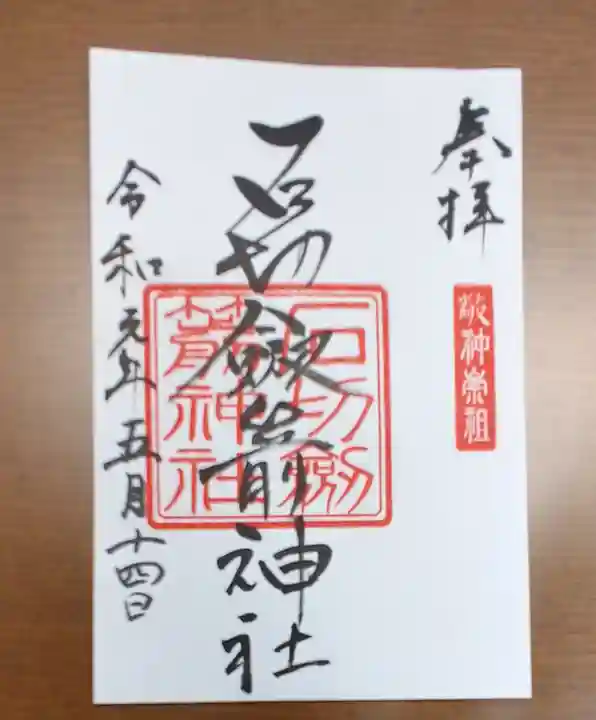 奉拝
敬神崇祖
石切劔箭神社
石切劔
箭神社
令和元年五月十四日